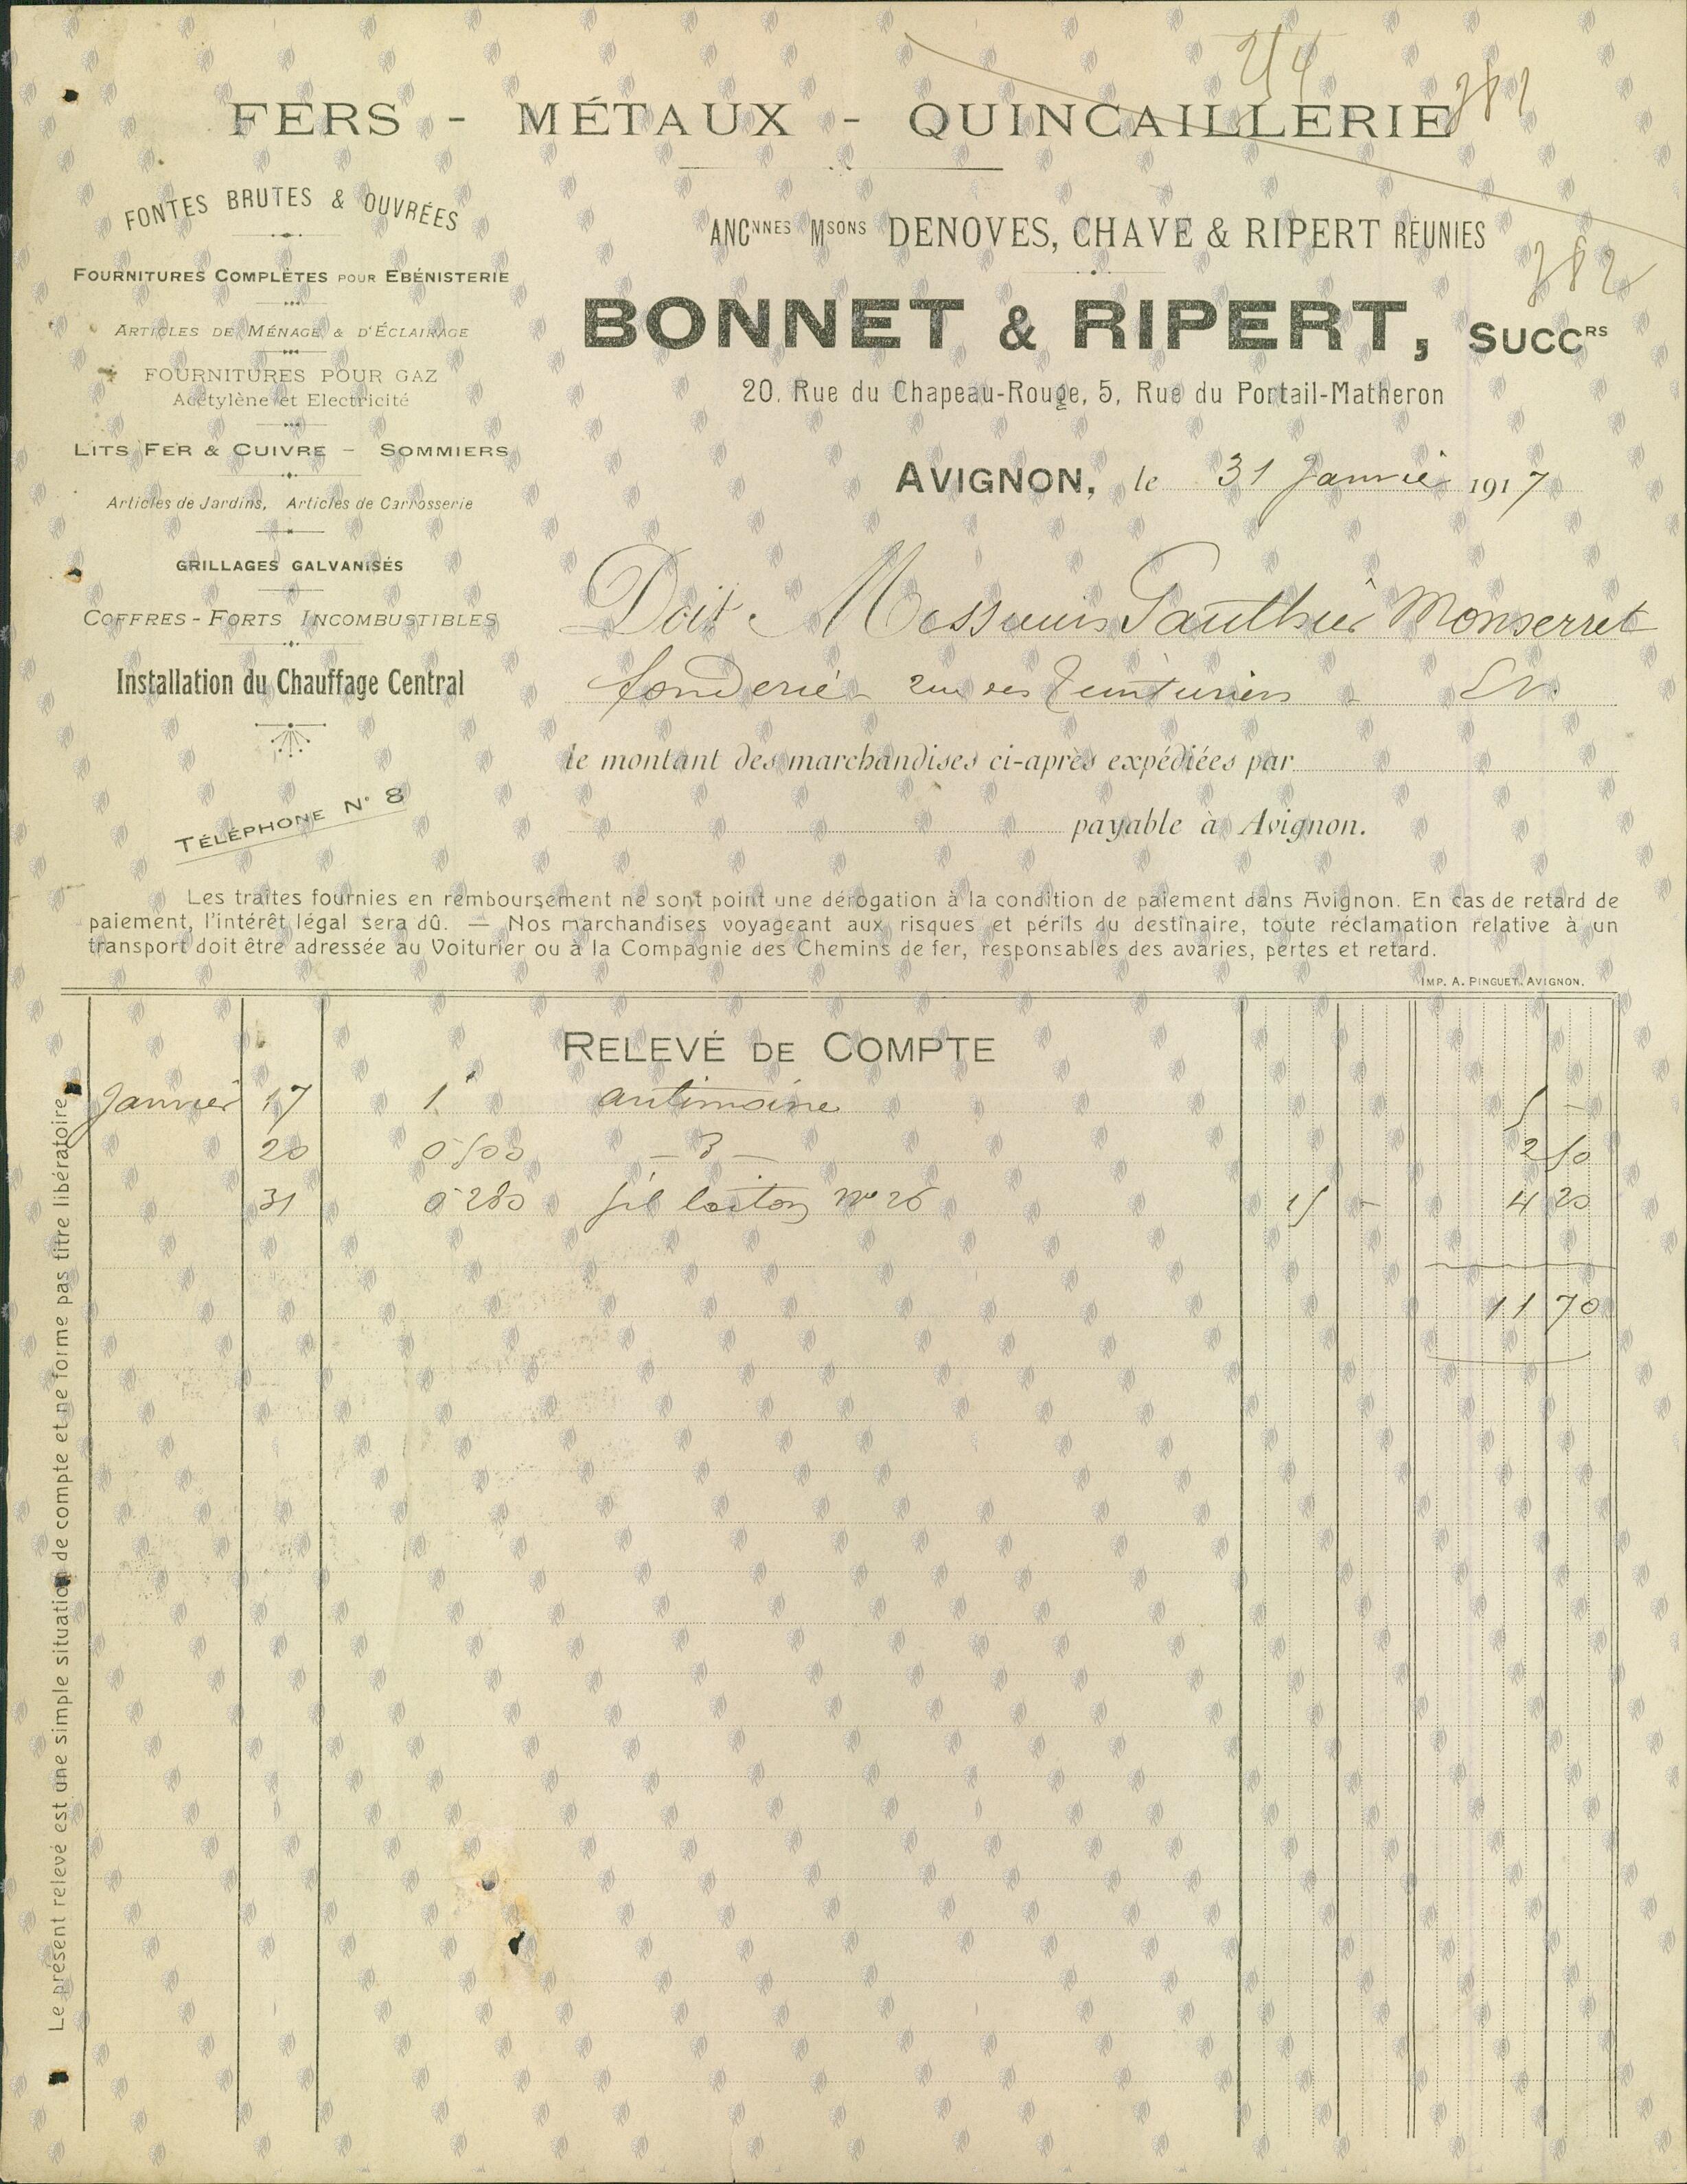 214
FERS - MÉTAUX - QUINCAILLERIE
382
FONTES BRUTES & OUVRÉES
FOURNITURES COMPLÈTES POUR EBÉNISTERIE
ARTICLES DE MÉNAGE & D'ÉCLAIRAGE
FOURNITURES POUR GAZ
Acétylène et Electricité
LITS FER & CUIVRE - SOMMIERS
Articles de Jardins, Articles de Carrosserie
GRILLAGES GALVANISÉS
COFFRES-FORTS INCOMBUSTIBLES
Installation du Chauffage Central
TÉLÉPHONE N° 8
ANCNNES MSONS DENOVES, CHAVE & RIPERT RÉUNIES
BONNET & RIPERT, SUCCRS
20, Rue du Chapeau-Rouge, 5, Rue du Portail-Matheron
AVIGNON, le 31 Janvier 1917
Doit Messieurs Gauthier Monserret
fonderie rue des Teinturiers - EV.
le montant des marchandises ci-après expédiées par
payable à Avignon.
Les traites fournies en remboursement ne sont point une dérogation à la condition de paiement dans Avignon. En cas de retard de
paiement, l'intérêt légal sera dû. — Nos marchandises voyageant aux risques et périls du destinaire, toute réclamation relative à un
transport doit être adressée au Voiturier ou à la Compagnie des Chemins de fer, responsables des avaries, pertes et retard.
IMP. A. PINGUET, AVIGNON.
RELEVÉ DE COMPTE
Janvier 17 1 antimoine 5 -
20 0 500 - 3 - 2 50
31 0 280 fil laiton N° 26 15 - 4 20
11 70
Le présent relevé est une simple situation de compte et ne forme pas titre libératoire